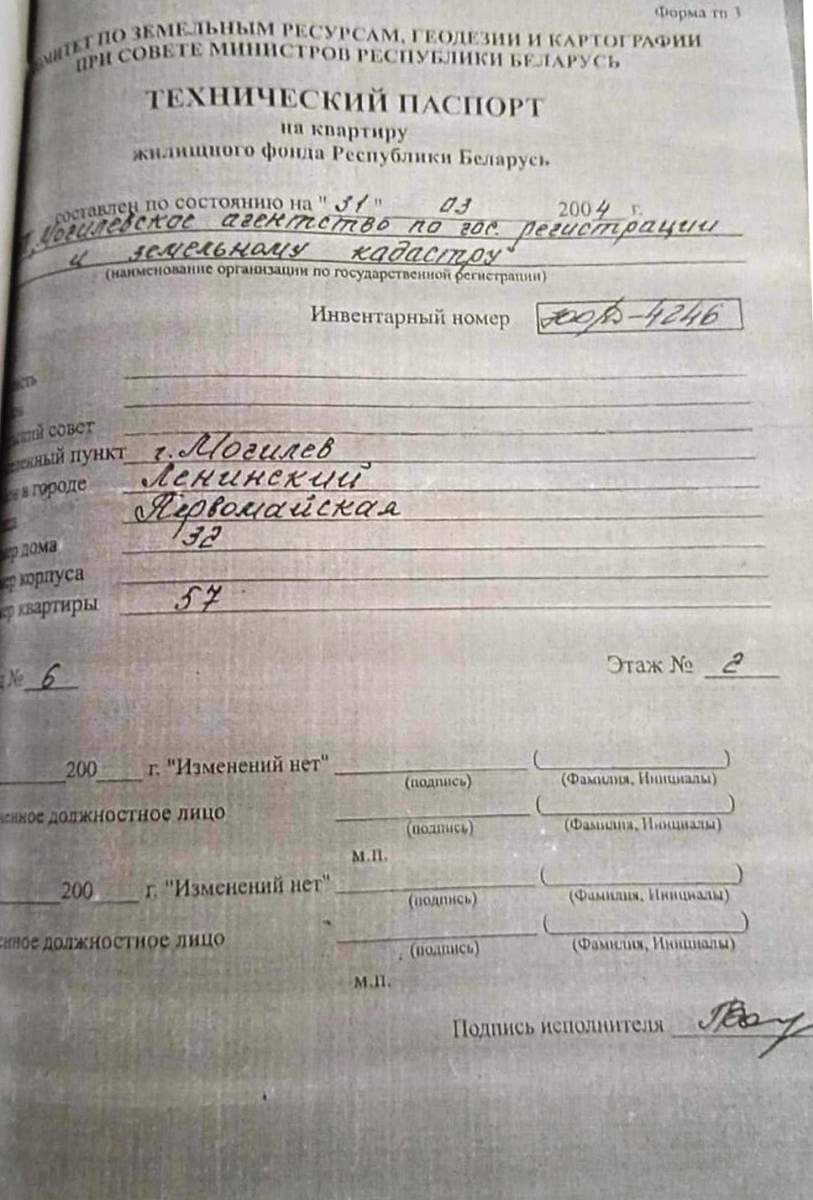 Форма тп 3
КОМИТЕТ ПО ЗЕМЕЛЬНЫМ РЕСУРСАМ, ГЕОДЕЗИИ И КАРТОГРАФИИ
ПРИ СОВЕТЕ МИНИСТРОВ РЕСПУБЛИКИ БЕЛАРУСЬ
ТЕХНИЧЕСКИЙ ПАСПОРТ
на квартиру
жилищного фонда Республики Беларусь
составлен по состоянию на "31" 03 2004 г.
Могилевское агентство по гос. регистрации
и земельному кадастру"
(наименование организации по государственной регистрации)
Инвентарный номер -4246
совет
пункт г. Могилев
в городе Ленинский
Первомайская
дома 32
корпуса
квартиры 57
№ 6 Этаж № 2
200 г. "Изменений нет"
(подпись) (Фамилия, Инициалы)
должностное лицо
(подпись) (Фамилия, Инициалы)
м.п.
200 г. "Изменений нет"
(подпись) (Фамилия, Инициалы)
должностное лицо
(подпись) (Фамилия, Инициалы)
м.п.
Подпись исполнителя